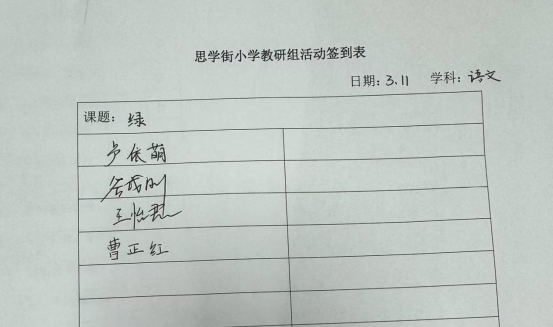 思学街小学教研组活动签到表
日期：3.11 学科：语文
课题：绿
卢依萌
王怡君
曹正红